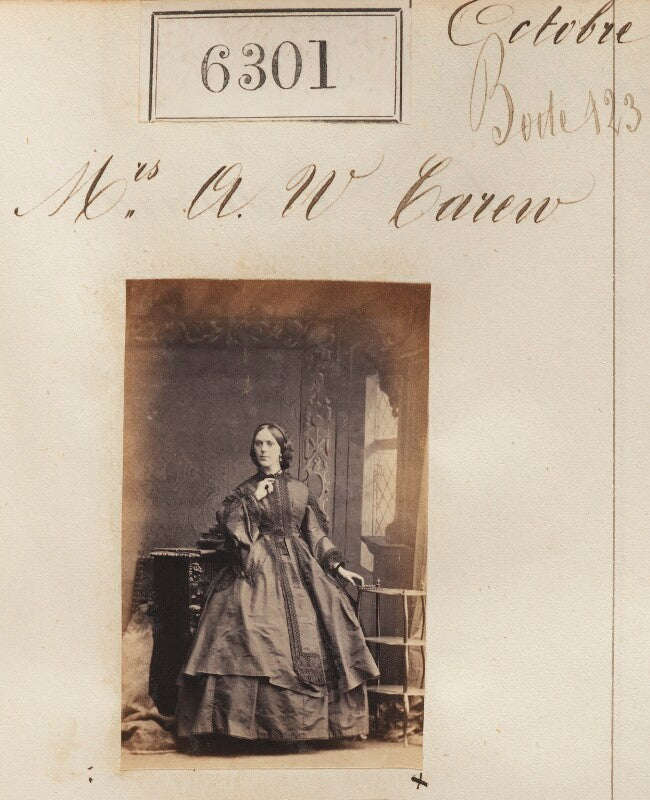 6301
Octobre
Boite 123
Mrs. A. W Carew